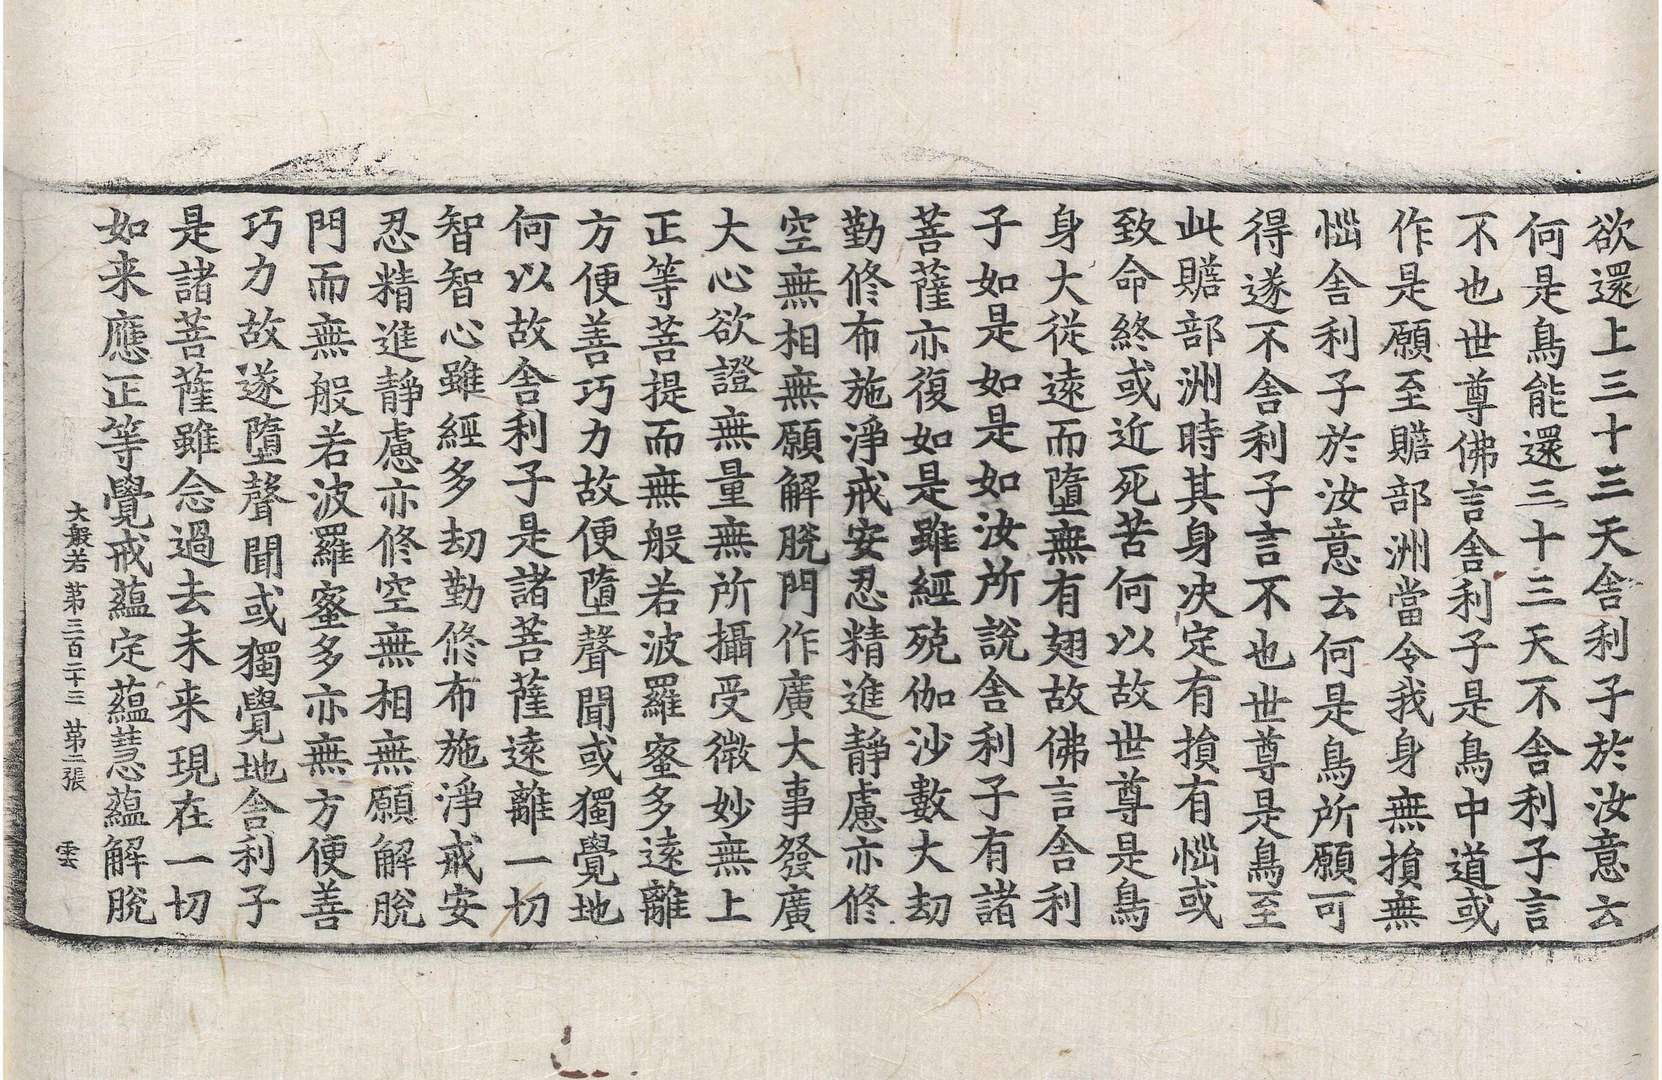 欲還上三十三天舍利子於汝意云
何是鳥能還三十三天不舍利子言
不也世尊佛言舍利子是鳥中道或
作是願至贍部洲當令我身無損無
惱舍利子於汝意云何是鳥所願可
得遂不舍利子言不也世尊是鳥至
此贍部洲時其身決定有損有惱或
致命終或近死苦何以故世尊是鳥
身大從遠而墮無有翅故佛言舍利
子如是如是如汝所說舍利子有諸
菩薩亦復如是雖經殑伽沙數大劫
勤修布施淨戒安忍精進靜慮亦修
空無相無願解脫門作廣大事發廣
大心欲證無量無所攝受微妙無上
正等菩提而無般若波羅蜜多遠離
方便善巧力故便墮聲聞或獨覺地
何以故舍利子是諸菩薩遠離一切
智智心雖經多劫勤修布施淨戒安
忍精進靜慮亦修空無相無願解脫
門而無般若波羅蜜多亦無方便善
巧力故遂墮聲聞或獨覺地舍利子
是諸菩薩雖念過去未来現在一切
如来應正等覺戒蘊定蘊慧蘊解脫
大般若 第三百二十三 第二張 雲